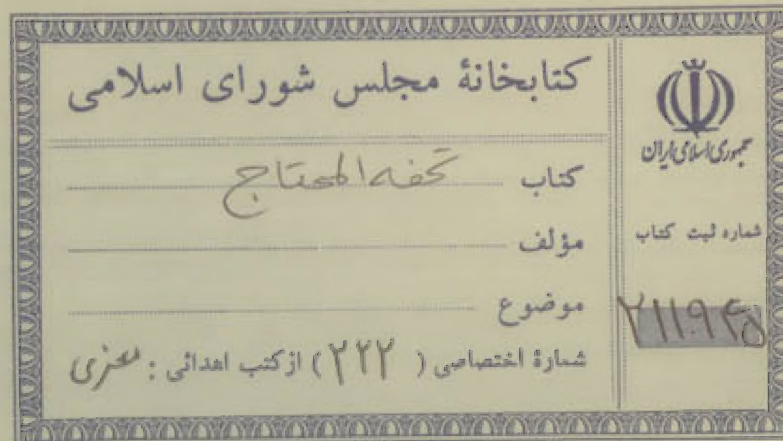 کتابخانهٔ مجلس شورای اسلامی
کتاب تحفه المحتاج
مؤلف
موضوع
شمارهٔ اختصاصی ( ۲۲۲ ) از کتب اهدائی :
جمهوری اسلامی ایران
شماره ثبت کتاب
۲۱۱۹۴۵